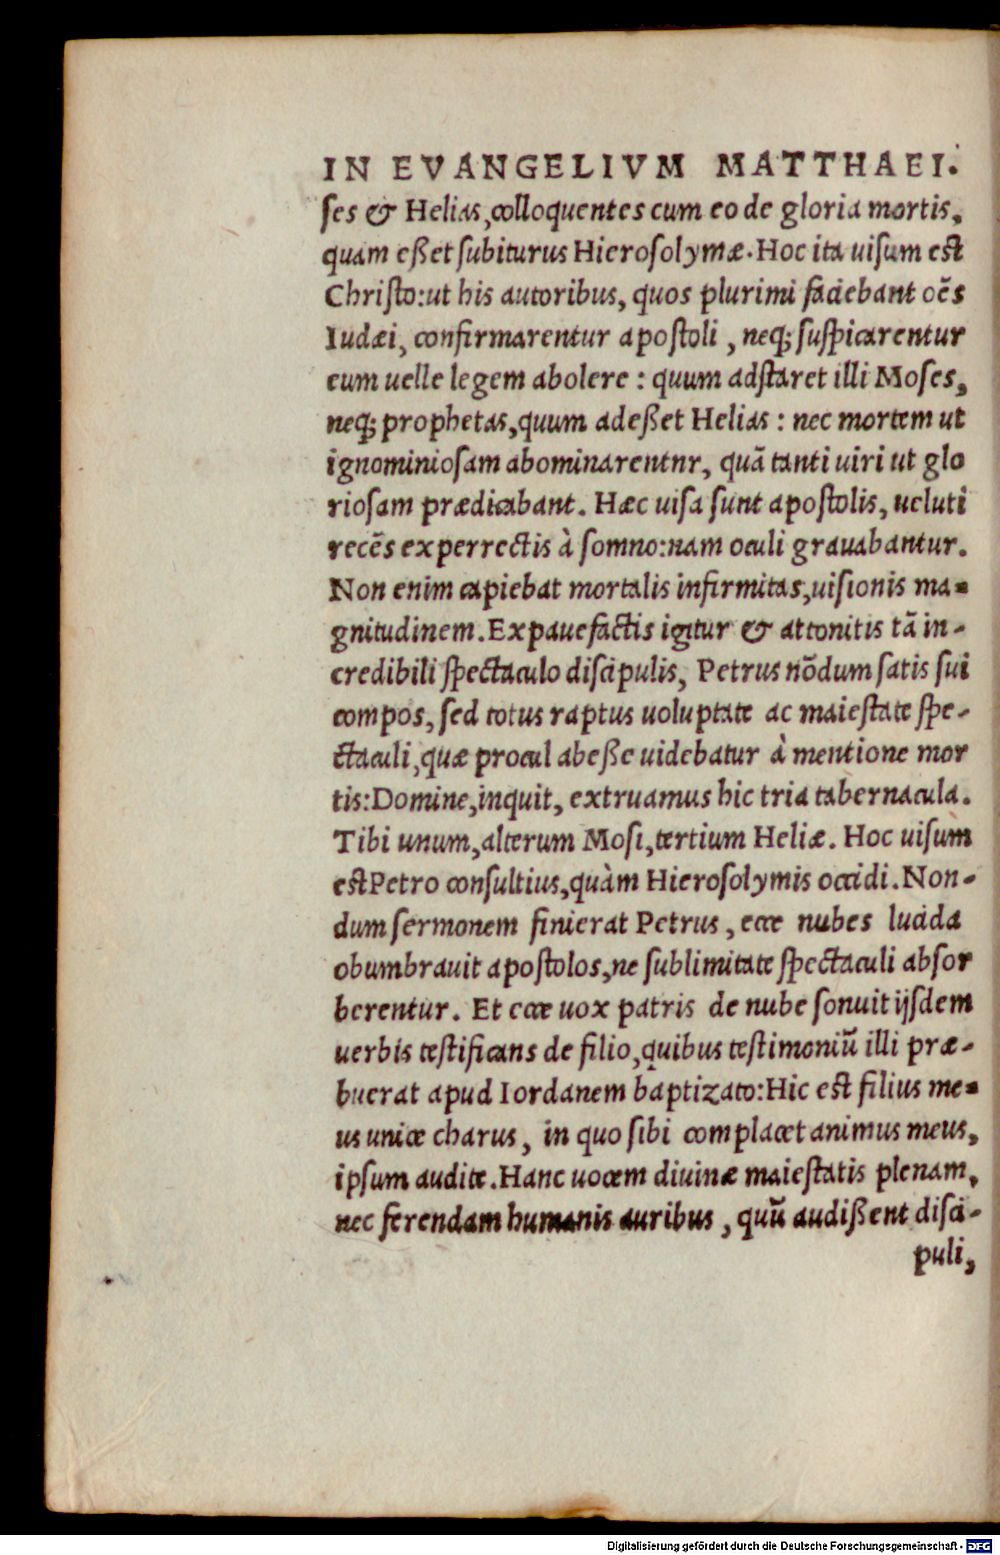 IN EVANGELIVM MATTHAEI.
ſes & Helias, colloquentes cum eo de gloria mortis,
quam eßet ſubiturus Hieroſolymæ. Hoc ita uiſum est
Chriſto: ut his autoribus, quos plurimi faciebant oẽs
Iudæi, confirmarentur apoſtoli, neq; ſuſpicarentur
eum uelle legem abolere: quum adſtaret illi Moſes,
neq; prophetas, quum adeßet Helias: nec mortem ut
ignominioſam abominarentnr, quã tanti uiri ut glo
rioſam prædicabant. Hæc uiſa ſunt apoſtolis, ueluti
recẽs experrectis à ſomno: nam oculi grauabantur.
Non enim capiebat mortalis infirmitas, uiſionis ma-
gnitudinem. Expauefactis igitur & attonitis tã in-
credibili ſpectaculo diſcipulis, Petrus nõdum ſatis ſui
compos, ſed totus raptus uoluptate ac maieſtate ſpe-
ctaculi, quæ procul abeße uidebatur à mentione mor
tis: Domine, inquit, extruamus hic tria tabernacula.
Tibi unum, alterum Moſi, tertium Heliæ. Hoc uiſum
est Petro conſultius, quàm Hieroſolymis occidi. Non-
dum ſermonem finierat Petrus, ecce nubes lucida
obumbrauit apoſtolos, ne ſublimitate ſpectaculi abſor
berentur. Et ecce uox patris de nube ſonuit ijſdem
uerbis teſtificans de filio, quibus teſtimoniũ illi præ-
buerat apud Iordanem baptizato: Hic est filius me-
us unice charus, in quo ſibi complacet animus meus,
ipſum audite. Hanc uocem diuinæ maieſtatis plenam,
nec ferendam humanis auribus, quũ audißent diſci-
puli,
Digitalisierung gefördert durch die Deutsche Forschungsgemeinschaft - DFG